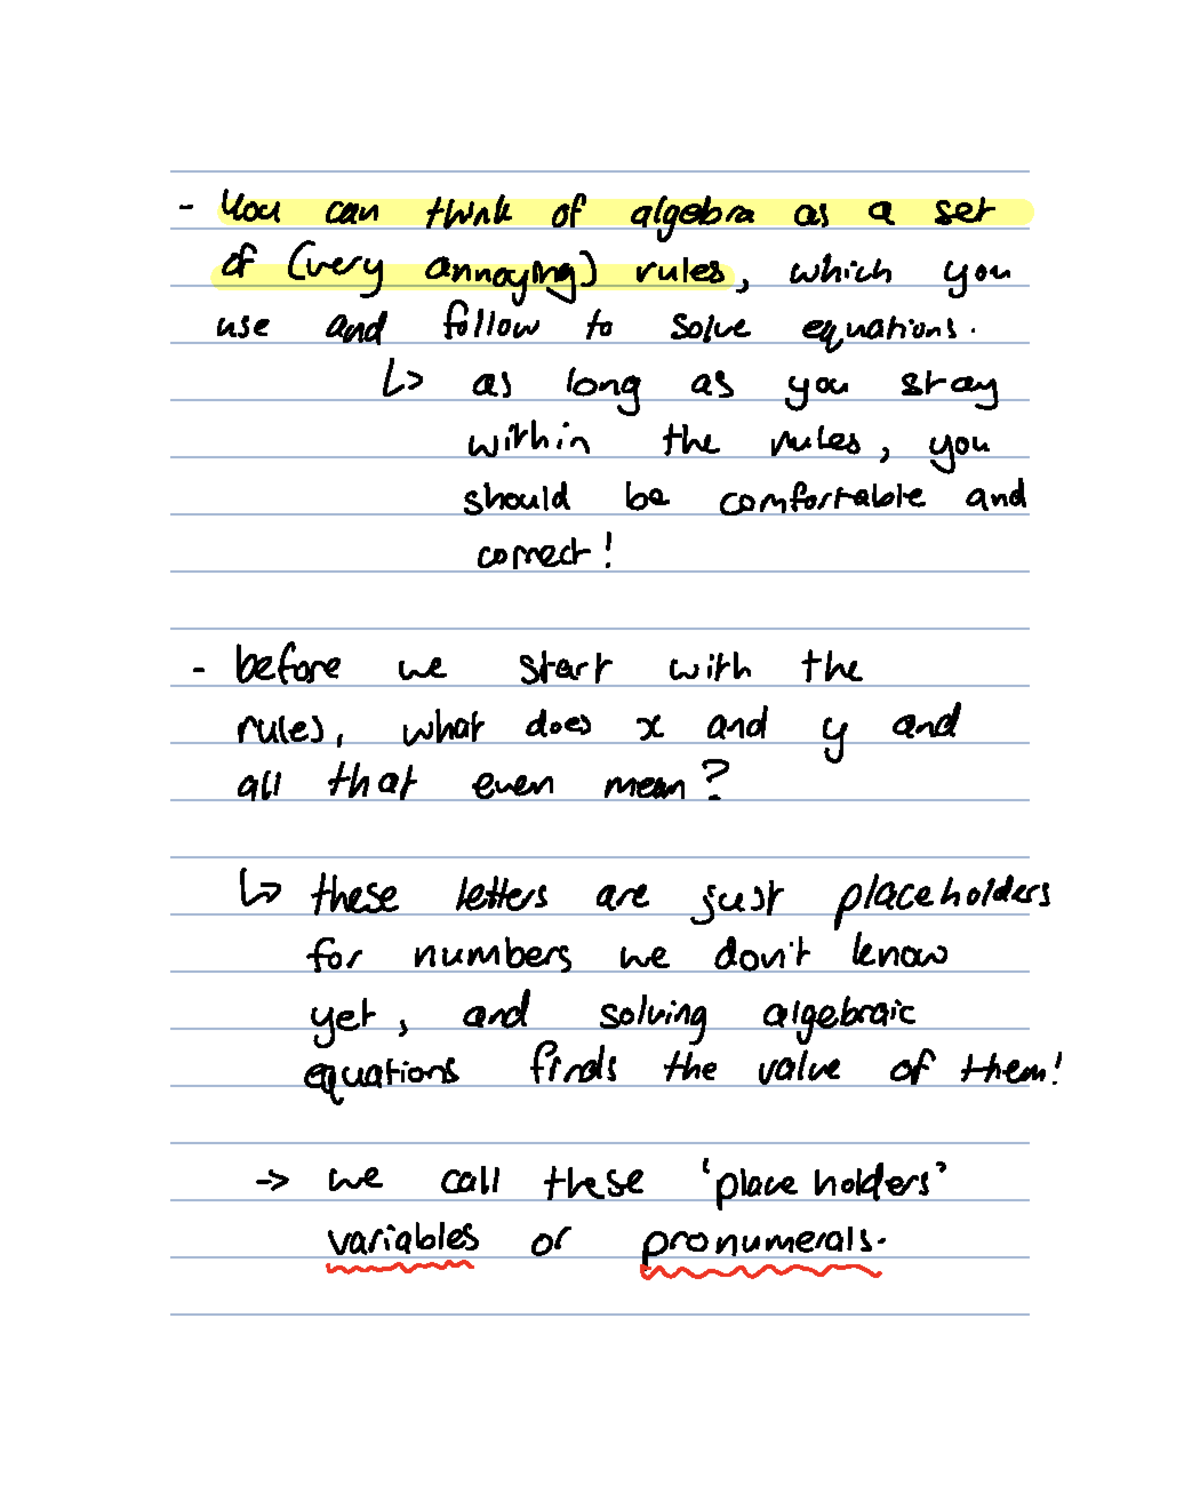 - You can think of algebra as a set
of (very annoying) rules, which you
use and follow to solve equations.
↳ as long as you stay
within the rules, you
should be comfortable and
correct!
- before we start with the
rules, what does x and y and
all that even mean?
↳ these letters are just placeholders
for numbers we don't know
yet, and solving algebraic
equations finds the value of them!
→ we call these 'place holders'
variables or pronumerals.